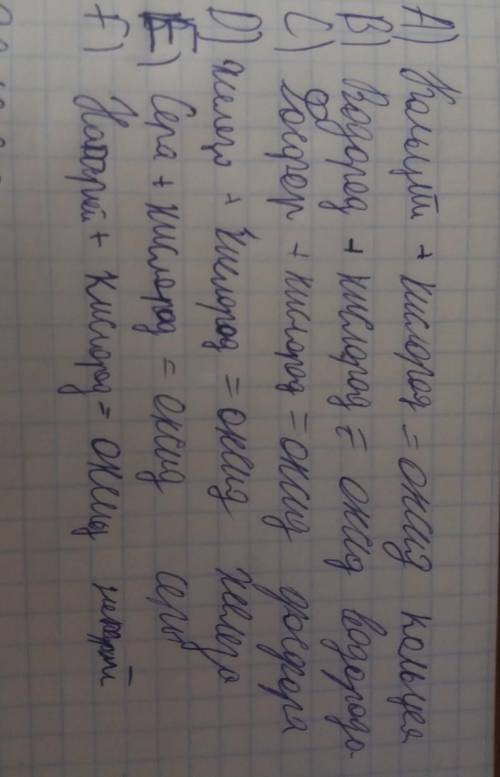 A) Кальций + кислород = оксид кальция
B) Водород + кислород = оксид водорода
C) Фосфор + кислород = оксид фосфора
D) Железо + кислород = оксид железо
E) Сера + кислород = оксид серы
F) Натрий + кислород = оксид натрий